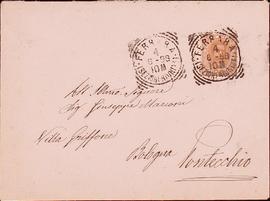 FERRARA
4
6-98
10M
FERRARA
4
6-98
10M
All' Illmo Signore
Sig Giuseppe Marconi
Villa Griffone
Bologna
Pontecchio